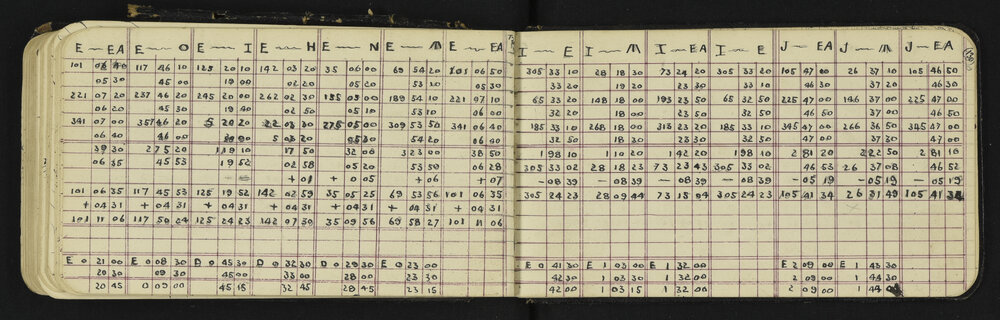 E — EA E — O E — I E — H E — N E — M E — EA I — E I — M I — EA I — E J — EA J — M J — EA
101 117 46 10 125 20 10 142 03 20 35 06 00 69 54 20 101 06 50 305 33 10 28 18 30 73 24 20 305 33 20 105 47 00 26 37 10 105 46 50
05 30 45 00 19 00 02 20 05 20 53 30 05 30 33 20 19 20 23 30 33 10 46 30 37 20 46 30
221 07 20 237 46 20 245 20 00 262 02 30 185 05 00 189 54 10 221 07 10 65 33 20 148 18 00 193 23 50 65 32 50 225 47 00 146 37 00 225 47 00
06 20 45 30 19 40 02 50 05 10 53 10 06 00 32 20 18 00 23 50 32 50 46 50 37 00 46 50
341 07 00 357 46 20 5 20 20 22 03 30 275 05 00 309 53 50 341 06 40 185 33 10 268 18 00 313 23 20 185 33 10 345 47 00 266 36 50 345 47 00
06 40 46 00 03 20 05 30 54 20 06 40 32 50 18 00 23 30 32 50 47 00 37 30 47 00
39 30 275 20 119 10 17 50 32 00 323 00 38 50 198 10 110 20 142 20 198 10 281 20 222 50 281 10
06 35 45 53 19 52 02 58 05 20 53 50 06 28 305 33 02 28 18 23 73 23 43 305 33 02 46 53 26 37 08 46 52
+ 01 + 0 05 + 06 + 07 — 08 39 — 08 39 — 08 39 — 08 39 — 05 19 — 05 19 — 05 19
101 06 35 117 45 53 125 19 52 142 02 59 35 05 25 69 53 56 101 06 35 305 24 23 28 09 44 73 15 04 305 24 23 105 41 34 26 31 49 105 41
+ 04 31 + 04 31 + 04 31 + 04 31 + 04 31 + 04 31 + 04 31
101 11 06 117 50 24 125 24 23 142 07 30 35 09 56 69 58 27 101 11 06
E 0 21 00 E 0 08 30 D 0 45 30 D 0 32 30 D 0 29 30 E 0 23 00 E 0 41 30 E 1 03 00 E 1 32 00 E 2 09 00 E 1 43 30
20 30 09 30 45 00 33 00 28 00 23 30 42 30 1 03 30 1 32 00 2 09 00 1 44 30
20 45 0 09 00 45 15 32 45 28 45 23 15 42 00 1 03 15 1 32 00 2 09 00 1 44